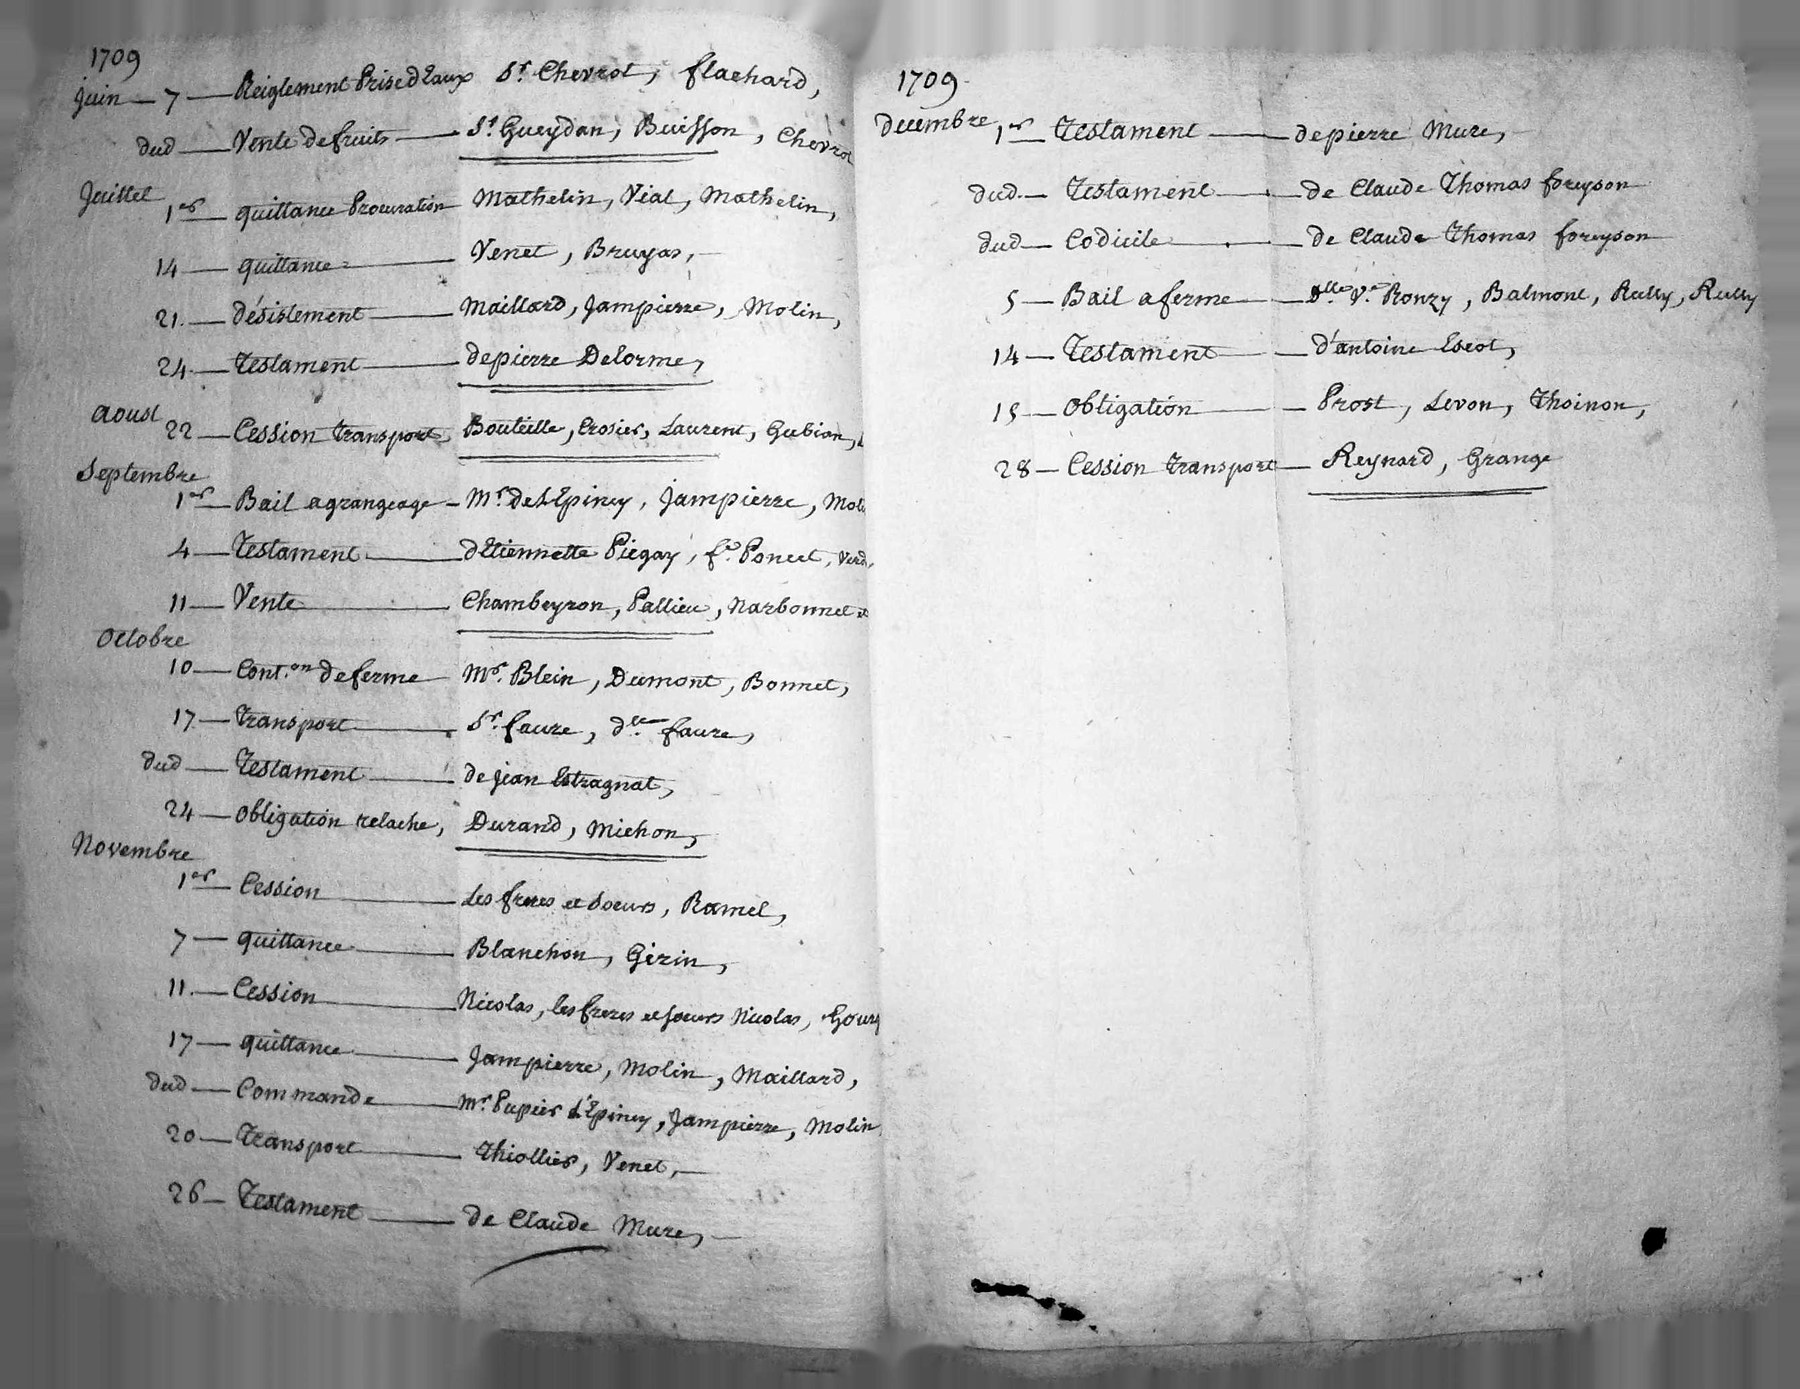 1709
Juin — 7 — Reiglement Prise d'Eaux Sr. Chevrot, flachard,
dud — Vente de fruits — Sr. Gueydan, Buisson, Chevrot
Juillet 1er — quittance Procuration Mathelin, Vial, Mathelin,
14 — quittance — Venet, Bruyas, —
21. — désistement — Maillard, Jampierre, Molin,
24 — Testament — de pierre Delorme,
Aoust 22 — Cession transport, Bouteille, Crosier, Laurent, Gubian,
Septembre
1er — Bail a grangeage — Mr. de L'Epiney, Jampierre, Moli
4 — Testament — d'Etiennette Piegay, fe. Poncet, Verd
11 — Vente — Chambeyron, Pallieu, Narbonnet et
Octobre
10 — Cont.on de ferme — Mr. Blein, Dumont, Bonnet,
17 — Transport — Sr. faure, dlle. faure,
dud — Testament — de Jean Estragnat,
24 — obligation relache, Durand, Michon,
Novembre
1er — Cession — Les freres et soeurs, Ramel,
7 — quittance — Blanchon, Gerin,
11. — Cession — Nicolas, les freres et soeurs Nicolas,
17 — quittance — Jampierre, Molin, Maillard,
dud — Commande — Mr. Pupier d'Epiney, Jampierre, Molin
20 — Transport — Thiollier, Venet, —
26 — Testament — de Claude Mure, —
1709
decembre 1er — Testament — de pierre Mure, —
dud. — Testament — de Claude Thomas foreyson
dud — Codicile — de Claude Thomas foreyson
5 — Bail a ferme — Dlle Ve. Ronzy, Balmont, Rully, Rully
14 — Testament — d'antoine Escot,
15 — obligation — Prost, Levon, Thoinon,
28 — Cession transport — Reynard, Grange